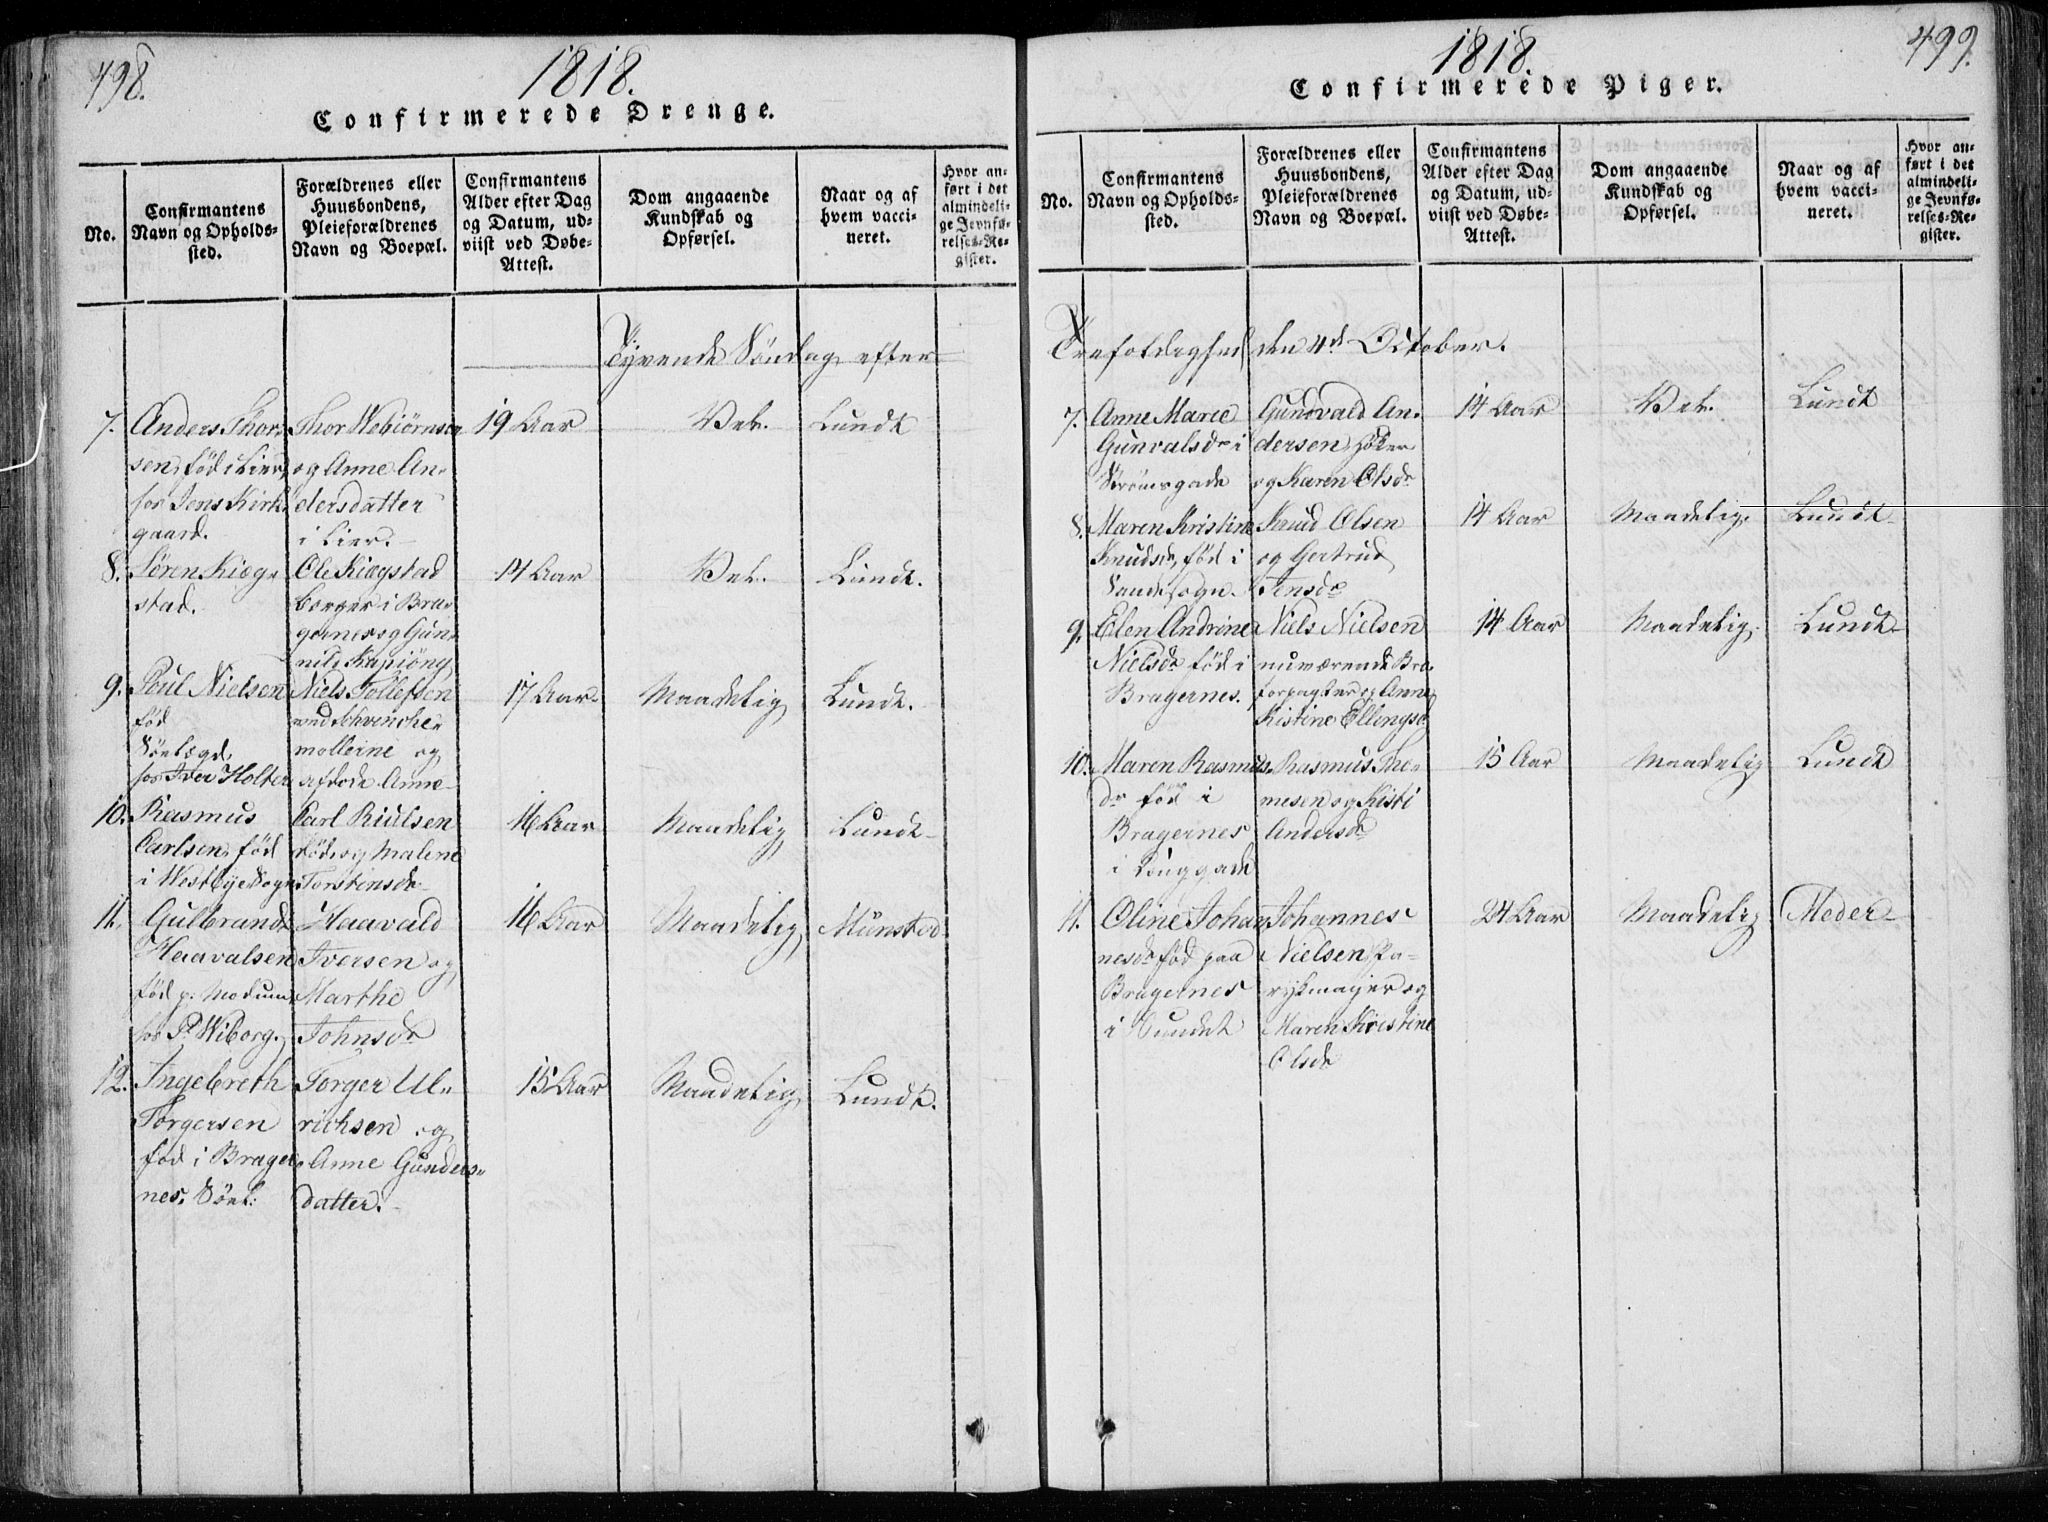 498.
1818.
Confirmerede Drenge.
No.
Confirmantens
Navn og Opholds-
sted.
Forældrenes eller
Huusbondens,
Pleieforældrenes
Navn og Boepæl.
Confirmantens
Alder efter Dag
og Datum, ud-
viist ved Døbe-
Attest.
Dom angaaende
Kundskab og
Opførsel.
Naar og af
hvem vacci-
neret.
Hvor an-
ført i det
almindeli-
ge Jevnfø-
relses-Re-
gister.
Tyvende Søndag efter
7. Anders Thor-
sen, fød i Lier,
hos Jens Kirk-
gaard.
Thor Webiörnsen
og Anne An-
dersdatter
i Lier.
19 Aar
Vel.
Lundt
8. Søren Kiæg-
stad.
Ole Kiægstad
borger i Bra-
gernes og Gun-
nild
14 Aar
Vel.
Lundt.
9. Poul Nielsen
fød
hos Iver Holter
Niels Tollefsen
ved Schvenche-
mollerne og
afdøde Anne
17 Aar.
Maadelig
Lundt.
10. Rasmus
Carlsen, fød
i Westbye Sogn
Carl
død, og Malene
Torstensdr
16 Aar
Maadelig
Lundt
11. Gulbrand
Haavalsen
fød p: Modum
hos P. Wiborg.
Haavald
Iversen og
Marthe
Johnsdr
16 Aar
Maadelig
Munsted
12. Ingebreth
Torgersen
fød i Brager-
nes.
Torger Ul-
richsen og
Anne Gunders-
datter.
15 Aar
Maadelig
Lundt.
499.
1818.
Confirmerede Piger.
No.
Confirmantens
Navn og Opholds-
sted.
Forældrenes eller
Huusbondens,
Pleieforældrenes
Navn og Boepæl.
Confirmantens
Alder efter Dag
og Datum, ud-
viist ved Døbe-
Attest.
Dom angaaende
Kundskab og
Opførsel.
Naar og af
hvem vacci-
neret.
Hvor an-
ført i det
almindeli-
ge Jevnfø-
relses-Re-
gister.
Trefoldighed den 4de October.
7. Anne Marie
Gunvalsdr i
Strømsgade
Gundvald An-
dersen
og Karen Olsdr
14 Aar
Vel.
Lundt
8. Maren Kristine
Knudsdr, fød i
Sande Sogn.
Knud Olsen
og Gertrud
Jensdr
14 Aar
Maadelig.
Lundt
9. Elen Andrine
Nielsdr fød i
Bragernes.
Niels Nielsen
nuværende Bro-
forpagter og Anne
Kistine Ellingsd
14 Aar
Maadelig.
Lundt
10. Maren Rasmus-
dr fød i
Bragernes
i
Rasmus Tho-
mesen og Kisti
Andersdr
15 Aar
Maadelig
Lundt
11. Oline Johan-
nesdr fød paa
Bragernes
i Sundet
Johannes
Nielsen Pa-
rykmager og
Maren Kristine
Olsdr
24 Aar
Maadelig
Meder